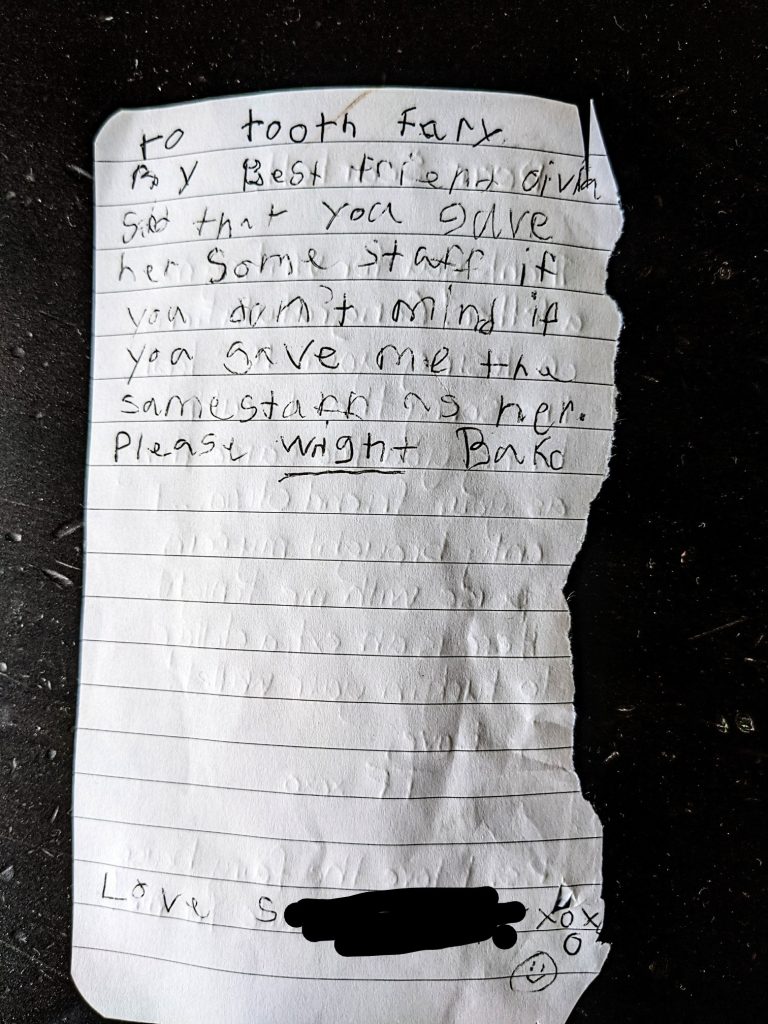 to tooth fary.
By Best friend divin
Sied that you gave
her some staff if
you don't mind if
you gave me the
same staff as her.
Please wright Bako
Love S
xox
o